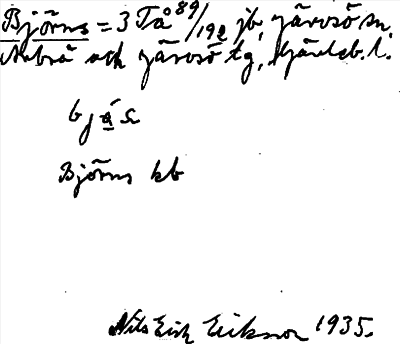 Björns = 3 Tå 89/192 jb, Järvsö sn,
och Järvsö tg,
Björns kb
Nils Erik Eriksson 1935.